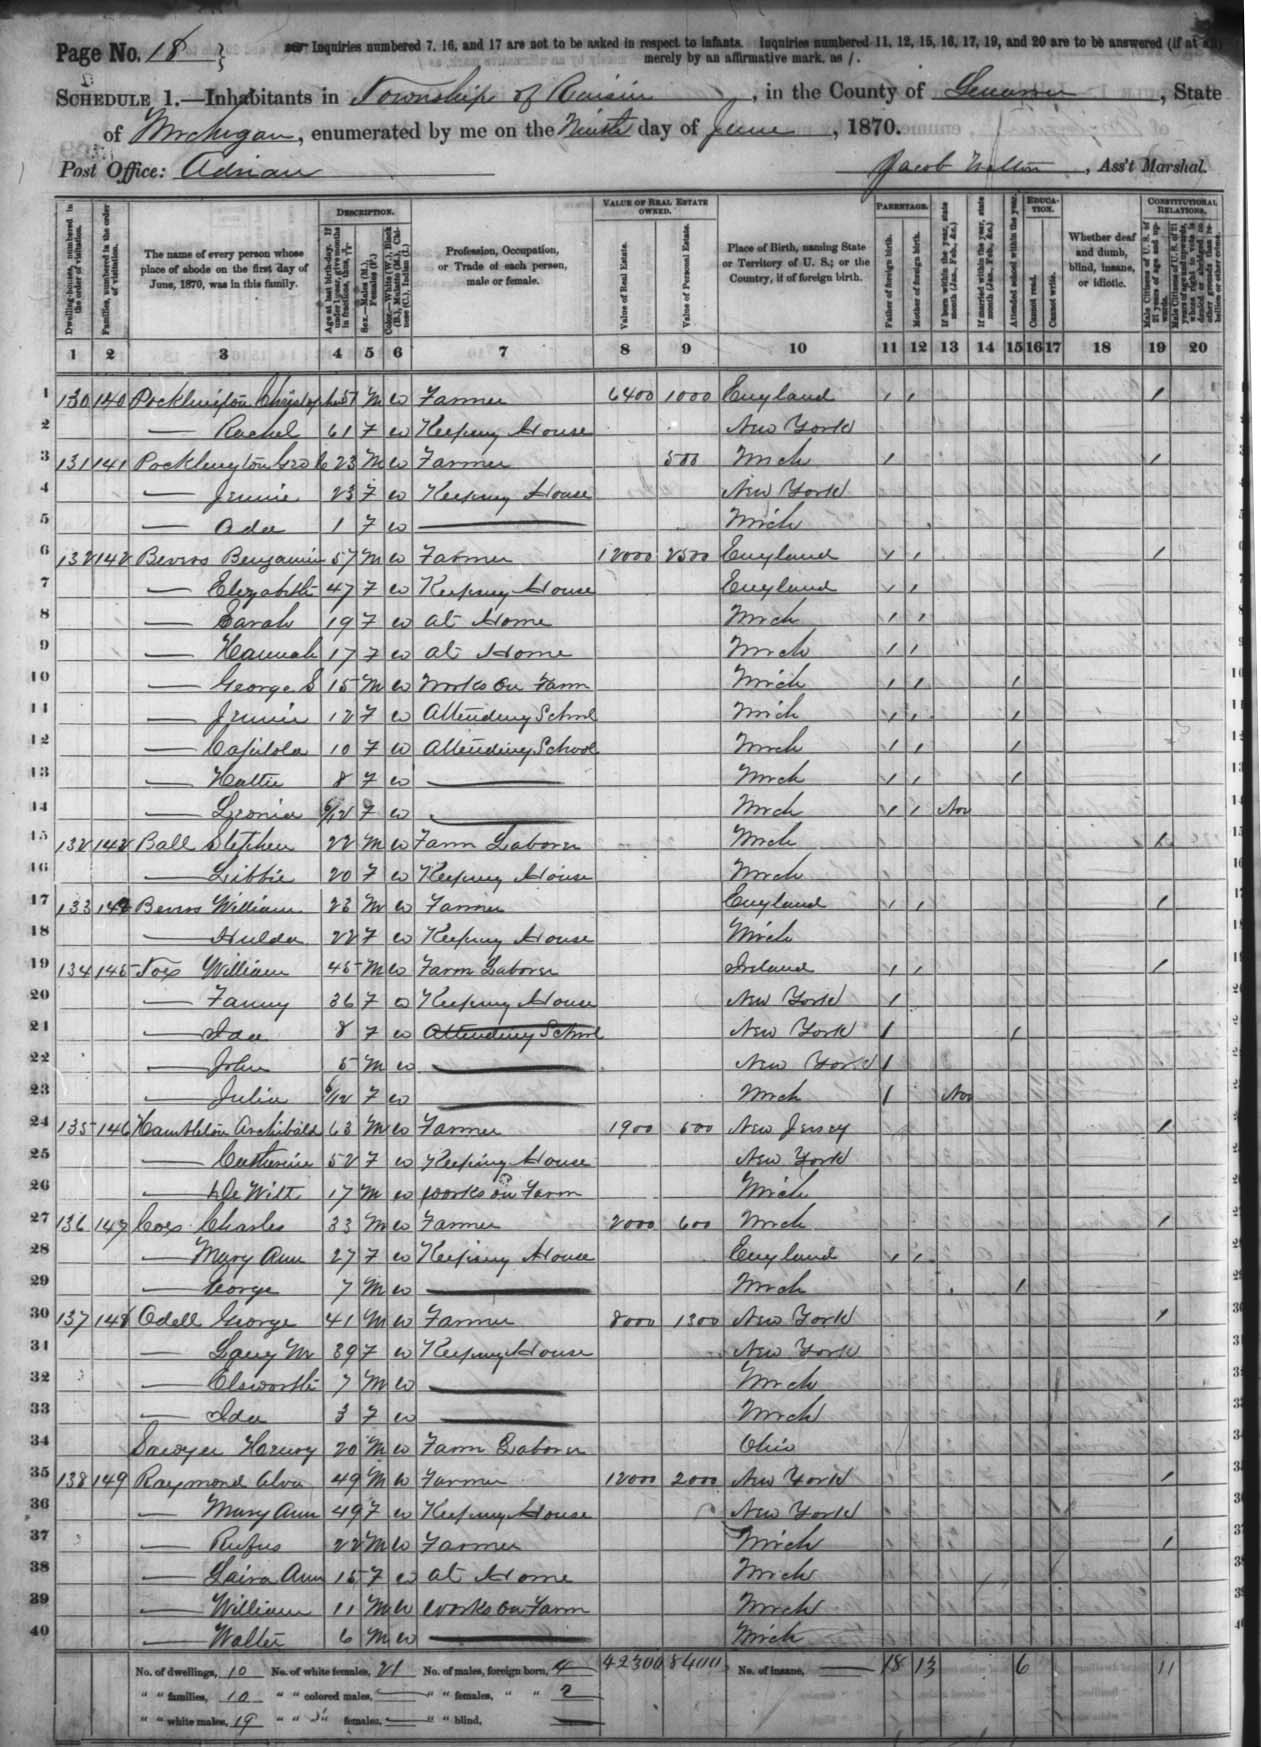 Page No. 18
Inquiries numbered 7, 16, and 17 are not to be asked in respect to infants. Inquiries numbered 11, 12, 15, 16, 17, 19, and 20 are to be answered (if at all)
merely by an affirmative mark, as /.
SCHEDULE 1.—Inhabitants in Township of Raisin, in the County of Lenawee, State
of Michigan, enumerated by me on the Ninth day of June, 1870.
Post Office: Adrian Jacob Walton, Ass't Marshal.
Dwelling-houses, numbered in the order of visitation.
Families, numbered in the order of visitation.
The name of every person whose place of abode on the first day of June, 1870, was in this family.
DESCRIPTION.
Age at last birth-day. If under 1 year, give months in fractions, thus, 3/12
Sex.—Males (M.), Females (F.)
Color.—White (W.), Black (B.), Mulatto (M.), Chinese (C.), Indian (I.)
Profession, Occupation, or Trade of each person, male or female.
VALUE OF REAL ESTATE OWNED.
Value of Real Estate.
Value of Personal Estate.
Place of Birth, naming State or Territory of U. S.; or the Country, if of foreign birth.
PARENTAGE.
Father of foreign birth.
Mother of foreign birth.
If born within the year, state month (Jan., Feb., &c.)
If married within the year, state month (Jan., Feb., &c.)
EDUCATION.
Attended school within the year.
Cannot read.
Cannot write.
Whether deaf and dumb, blind, insane, or idiotic.
CONSTITUTIONAL RELATIONS.
Male Citizens of U. S. of 21 years of age and upwards.
Male Citizens of U. S. of 21 years of age and upwards, whose right to vote is denied or abridged on other grounds than rebellion or other crime.
1 2 3 4 5 6 7 8 9 10 11 12 13 14 15 16 17 18 19 20
1 130 140 Pocklington Christopher 57 M W Farmer 6400 1000 England / / /
2 — Rachel 61 F W Keeping House New York
3 131 141 Pocklington Geo R 23 M W Farmer 500 Mich / /
4 — Jennie 23 F W Keeping House New York
5 — Ada 1 F W — Mich
6 132 142 Bevins Benjamin 57 M W Farmer 12000 2500 England / / /
7 — Elizabeth 47 F W Keeping House England / /
8 — Sarah 19 F W At Home Mich / /
9 — Hannah 17 F W At Home Mich / /
10 — George S 15 M W Works On Farm Mich / / /
11 — Jennie 12 F W Attending School Mich / / /
12 — Capitola 10 F W Attending School Mich / / /
13 — Hattie 8 F W — Mich / / /
14 — Leonia 6/12 F W — Mich / / Nov
15 132 142 Ball Stephen 22 M W Farm Laborer Mich /
16 — Libbie 20 F W Keeping House Mich
17 133 Bevins William 23 M W Farmer England / / /
18 — Hulda 22 F W Keeping House Mich
19 134 145 Fox William 45 M W Farm Laborer Ireland / / /
20 — Fanny 36 F W Keeping House New York /
21 — Ida 8 F W Attending School New York / /
22 — John 5 M W — New York /
23 — Julia 6/12 F W — Mich / Nov
24 135 146 Hambleton Archibald 63 M W Farmer 1900 500 New Jersey /
25 — Catherine 52 F W Keeping House New York
26 — De Witt 17 M W Works on Farm Mich
27 136 147 Cox Charles 33 M W Farmer 2000 600 Mich /
28 — Mary Ann 27 F W Keeping House England / /
29 — George 7 M W — Mich /
30 137 148 Odell George 41 M W Farmer 8000 1300 New York /
31 — Lucy M 39 F W Keeping House New York
32 — Elsworth 7 M W — Mich
33 — Ida 3 F W — Mich
34 Sawyer Harvey 20 M W Farm Laborer Ohio
35 138 149 Raymond Alva 49 M W Farmer 12000 2000 New York /
36 — Mary Ann 49 F W Keeping House New York
37 — Rufus 22 M W Farmer Mich /
38 — Laura Ann 15 F W At Home Mich
39 — William 11 M W Works On Farm Mich
40 — Walter 6 M W — Mich
No. of dwellings, 10 No. of white females, 21 No. of males, foreign born, 4 42300 8400 No. of insane, — 18 13 6 11
" " families, 10 " " colored males, — " " females, " " 2
" " white males, 19 " " " females, — " " blind, —